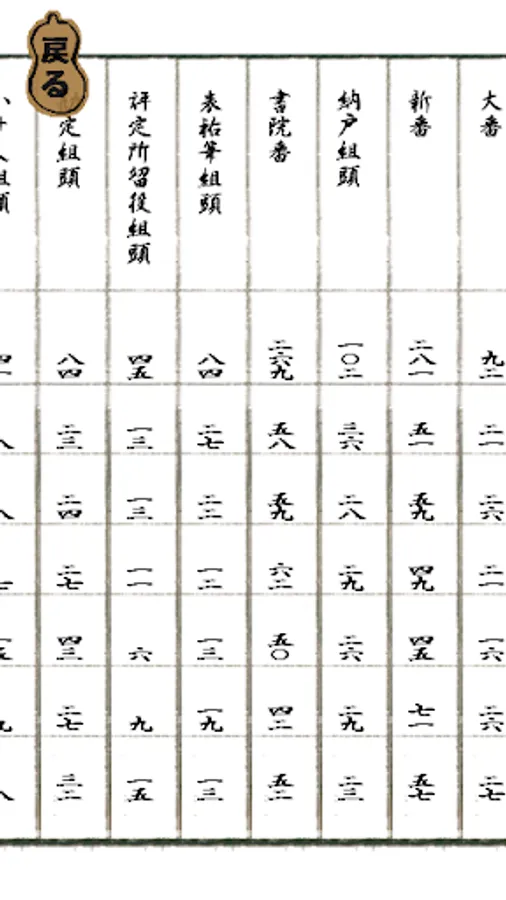 戻る
大番 九二 二一 二六 二一 一六 二六 二七
新番 二八一 五一 五九 四九 四五 七一 五七
納戸組頭 一〇二 三六 二八 二九 二六 二九 二三
書院番 二六九 五八 五九 六二 五〇 四二 五二
表祐筆組頭 八四 二七 二二 一二 一三 一九 一三
評定所留役組頭 四五 一三 一三 一一 六 九 一五
定組頭 八四 二三 二四 二七 四三 二七 三二